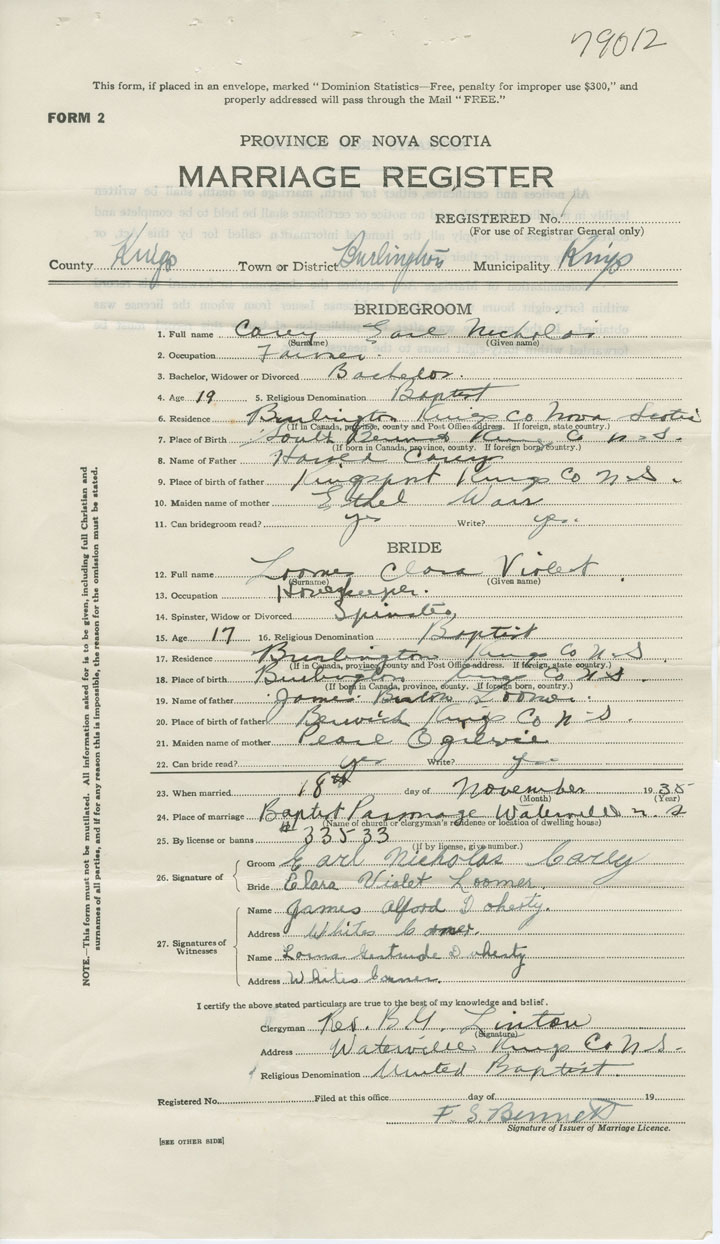 79012
This form, if placed in an envelope, marked "Dominion Statistics—Free, penalty for improper use $300," and
properly addressed will pass through the Mail "FREE."
FORM 2
PROVINCE OF NOVA SCOTIA
MARRIAGE REGISTER
REGISTERED No.
(For use of Registrar General only)
County Kings Town or District Burlington Municipality Kings
BRIDEGROOM
1. Full name Carey Earl Nicholas
(Surname) (Given name)
2. Occupation Farmer.
3. Bachelor, Widower or Divorced Bachelor.
4. Age 19 5. Religious Denomination Baptist
6. Residence Burlington Kings Co Nova Scotia
(If in Canada, province, county and Post Office address. If foreign, state country.)
7. Place of Birth South Berwick Kings Co N.S.
(If born in Canada, province, county. If foreign born, country.)
8. Name of Father Carey
9. Place of birth of father Kingsport Kings Co N.S.
10. Maiden name of mother Ethel
11. Can bridegroom read? yes Write? yes.
BRIDE
12. Full name Loomer Clara Violet
(Surname) (Given name)
13. Occupation Housekeeper.
14. Spinster, Widow or Divorced Spinster
15. Age 17 16. Religious Denomination Baptist
17. Residence Burlington Kings Co N.S
(If in Canada, province, county and Post Office address. If foreign, state country.)
18. Place of birth Burlington Kings Co N.S.
(If born in Canada, province, county. If foreign born, country.)
19. Name of father James Loomer.
20. Place of birth of father Berwick Kings Co N.S.
21. Maiden name of mother Pearl Ogilvie
22. Can bride read? yes Write? yes
23. When married 18th day of November 1935
(Month) (Year)
24. Place of marriage Baptist Parsonage Waterville N.S
(Name of church or clergyman's residence or location of dwelling house)
25. By license or banns #33533
(If by license, give number.)
26. Signature of Groom Earl Nicholas Carey
Bride Clara Violet Loomer.
27. Signatures of Witnesses
Name James Alford Doherty.
Address Whites Corner.
Name Lorna Gertrude Doherty
Address Whites Corner.
I certify the above stated particulars are true to the best of my knowledge and belief.
Clergyman Rev. B.Y. Linton
(Signature)
Address Waterville Kings Co N.S.
Religious Denomination United Baptist.
Registered No. Filed at this office day of 19
F. S. Bennett
Signature of Issuer of Marriage Licence.
[SEE OTHER SIDE]
NOTE.—This form must not be mutilated. All information asked for is to be given, including full Christian and
surnames of all parties, and if for any reason this is impossible, the reason for the omission must be stated.